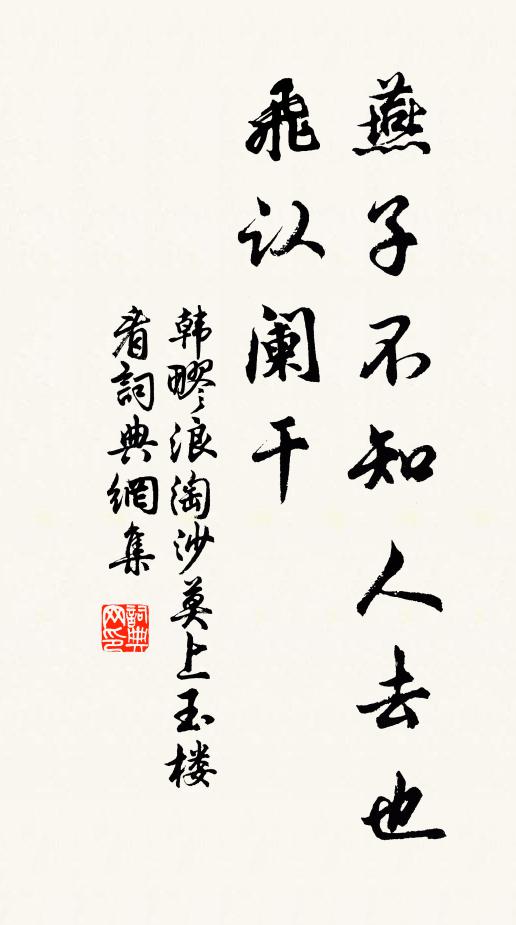 燕子不知人去也
飞认阑干
韩疁浪淘沙莫上玉楼
看詞典網集
詞典网印